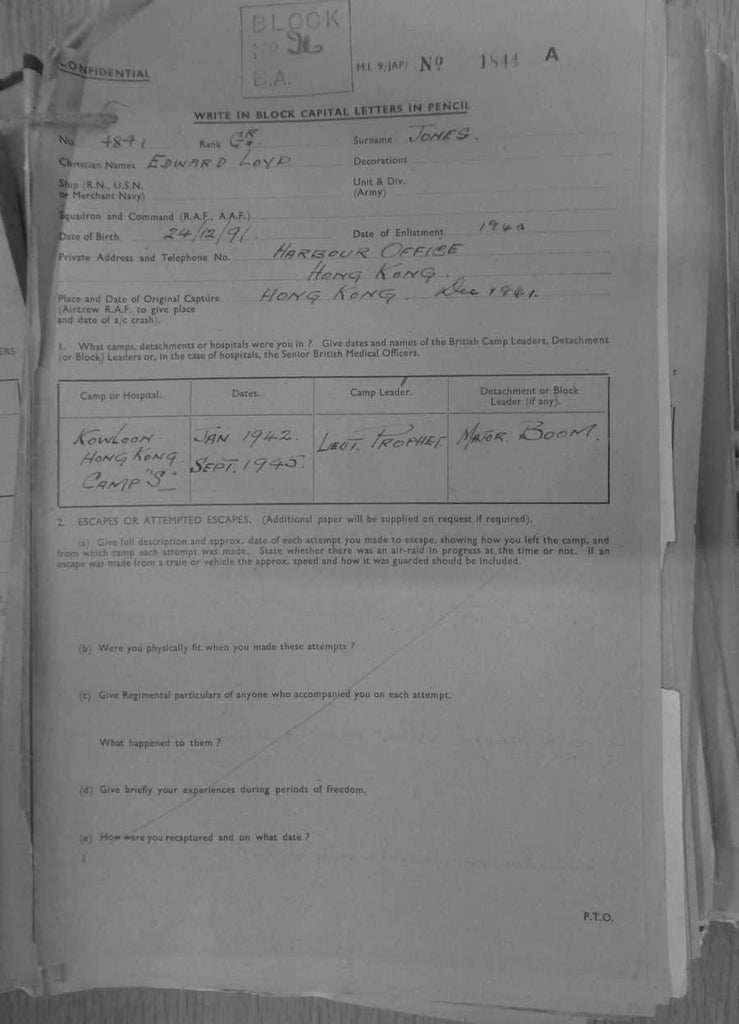 BLOCK
No 36
B.A.
CONFIDENTIAL
M.I. 9/JAP/ No 1844 A
WRITE IN BLOCK CAPITAL LETTERS IN PENCIL
No. 4841 Rank GR Surname JONES.
Christian Names EDWARD LOYD Decorations
Ship (R.N., U.S.N. Unit & Div.
or Merchant Navy) (Army)
Squadron and Command (R.A.F., A.A.F.)
Date of Birth 24/12/91. Date of Enlistment 1940
Private Address and Telephone No. HARBOUR OFFICE
HONG KONG.
Place and Date of Original Capture. HONG KONG. Dec 1941.
(Aircrew R.A.F. to give place
and date of a/c crash).
1. What camps, detachments or hospitals were you in ? Give dates and names of the British Camp Leaders, Detachment
(or Block) Leaders or, in the case of hospitals, the Senior British Medical Officers.
Camp or Hospital. Dates. Camp Leader. Detachment or Block
Leader (if any).
KOWLOON. JAN 1942. LIEUT. PROPHET MAJOR. BOOM.
HONG KONG SEPT. 1945.
CAMP "S"
2. ESCAPES OR ATTEMPTED ESCAPES. (Additional paper will be supplied on request if required).
(a) Give full description and approx. date of each attempt you made to escape, showing how you left the camp, and
from which camp each attempt was made. State whether there was an air-raid in progress at the time or not. If an
escape was made from a train or vehicle the approx. speed and how it was guarded should be included.
(b) Were you physically fit when you made these attempts ?
(c) Give Regimental particulars of anyone who accompanied you on each attempt.
What happened to them ?
(d) Give briefly your experiences during periods of freedom.
(e) How were you recaptured and on what date ?
P.T.O.